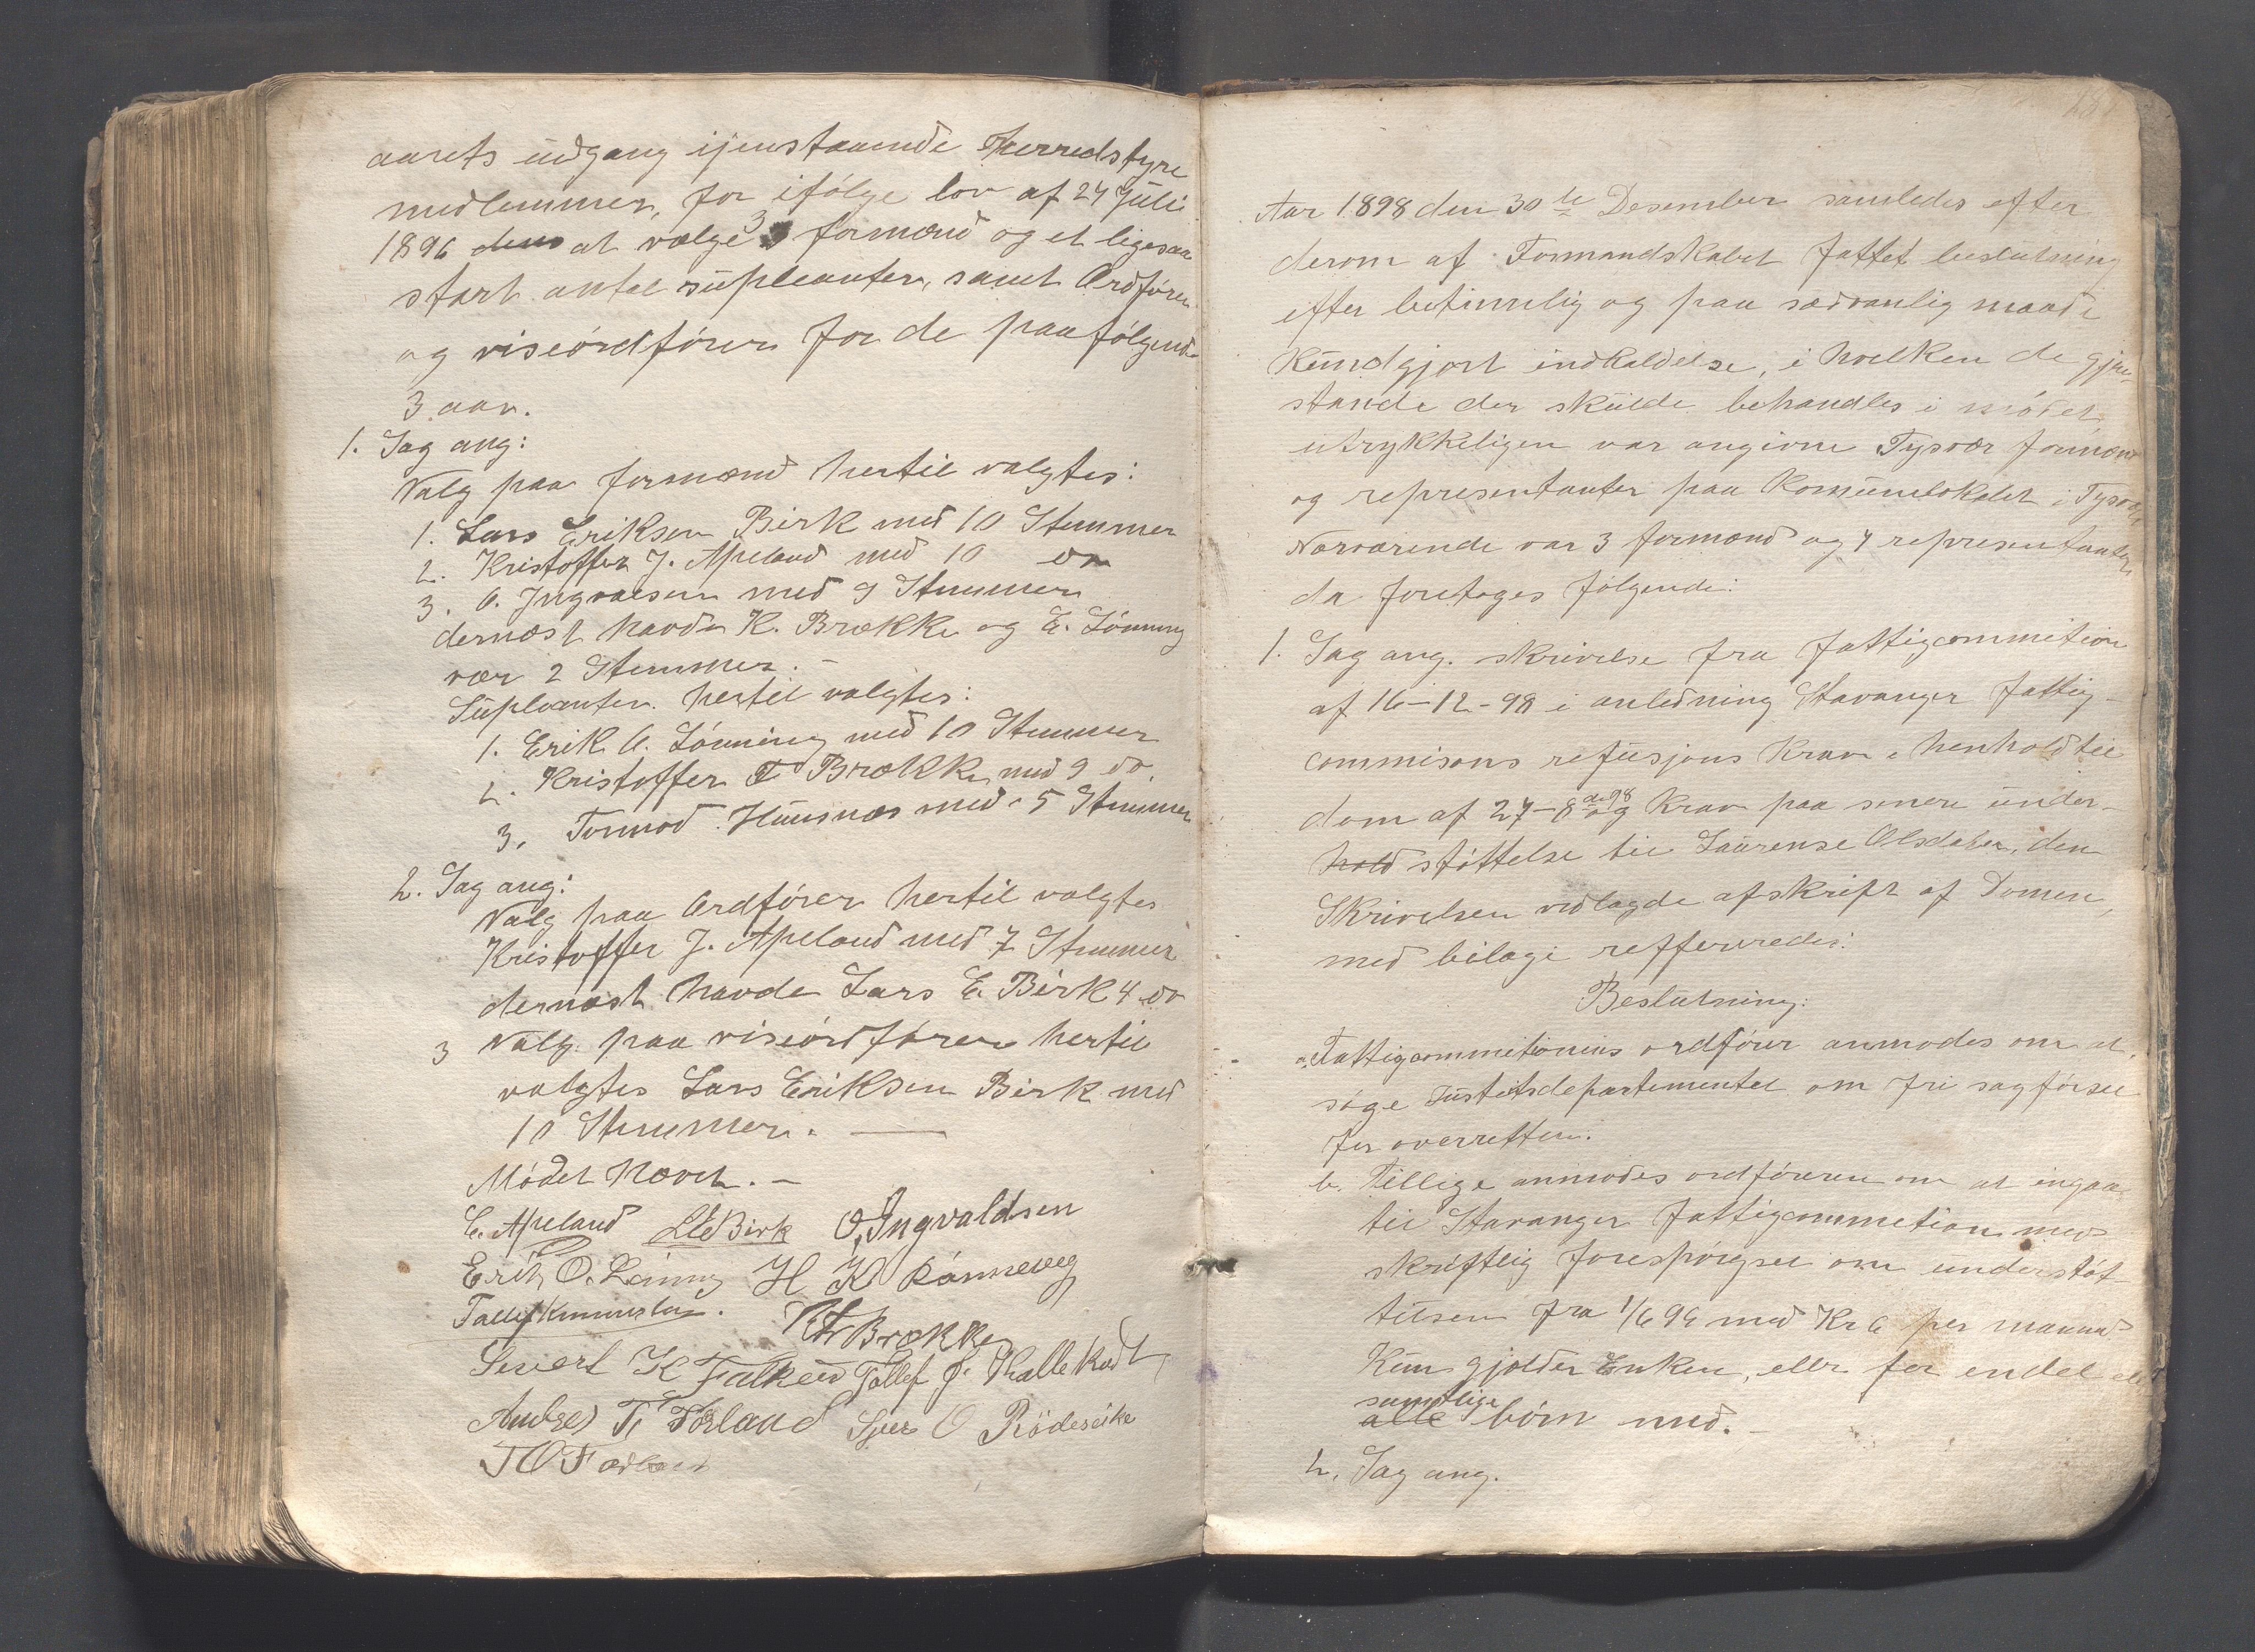 aarets udgang ijenstaaende Herredstyre
medlemmer, for ifølge lov af 27 Juli
1896 dens at vælge 3 formænd og et ligesaa
stort antal supleanter, samt Ordfører
og viseordfører for de paafølgende
3 aar.
1. Sag ang:
Valg paa formænd hertil valgtes:
1. Lars Eriksen Birk med 10 Stemmer
2. Kristoffer J. Apeland med 10 do
3. O. Ingvalsen med 9 Stemmer
dernæst havde K. Brække og E. Lønning
vær 2 Stemmer. -
Supleanter hertil valgtes:
1. Erik O. Lønning med 10 Stemmer
2. Kristoffer T Brække med 9 do.
3. Tormod Huusnæs med 5 Stemmer
2. Sag ang:
Valg paa Ordfører hertil valgtes
Kristoffer J. Apeland med 7 Stemmer
dernæst havde Lars E. Birk 4 do
3 Valg paa viseordfører hertil
valgtes Lars Eriksen Birk med
10 Stemmer. —
Mødet Hævet. -
C. Apeland LEBirk O, Ingvaldsen
Erik O. Lønning H K Rønneveg
Tallef
KTBrække
Sivert K Falkeid Tollef J.
Andres T. Førland O
T O
Aar 1898 den 30te Desember samledes efter
derom af Formandskabet fattet beslutning
efter betimelig og paa sædvanlig maade
kundgjort indkaldelse, i hvelken de gjen-
stande der skulde behandles i mødet
utrykkeligen var angivne Tysvær formænd
og representanter paa Komunelokalet i Tysvær
Nærværende var 3 formænd og 7 representanter
da foretoges følgende:
1. Sag ang. skrivelse fra fattigcommition
af 16-12-98 i anledning Stavanger fattig-
commisons refusjons krav i henhold til
dom af 27-8 98 og krav paa senere under-
hold støttelse til Laurense Olsdatter, den
Skrivelsen vedlagde afskript af Domen,
med bilage reffereredes:
Beslutning:
a. Fattigcommitionens ordfører anmodes om at
søge Justitsdepartementet om fri sagførsel
for overretten.
b. Tillige anmodes ordføreren om at ingaa
til Stavanger fattigcommetion med
skriftlig forespørgsel om understøt-
telsen fra 1/6 96 med Kr 6 per maaned
Kun gjælder Enken, eller for endel
samtlige
alle børn med. -
2. Sag ang.